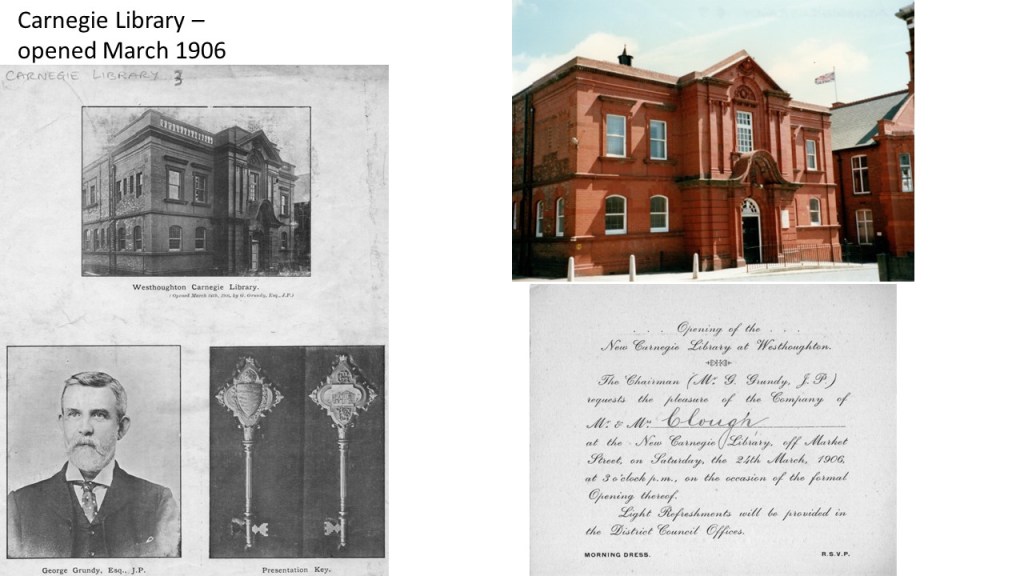 Carnegie Library –
opened March 1906
CARNEGIE LIBRARY 3
Westhoughton Carnegie Library.
(Opened March 24th, 1906, by G. Grundy, Esq., J.P.)
George Grundy, Esq., J.P.
Presentation Key.
. . . Opening of the . . .
New Carnegie Library at Westhoughton.
The Chairman (Mr. G. Grundy, J. P.)
requests the pleasure of the Company of
Mr. & Mrs. Clough
at the New Carnegie Library, off Market
Street, on Saturday, the 24th March, 1906,
at 3 o'clock p.m., on the occasion of the formal
Opening thereof.
Light Refreshments will be provided in
the District Council Offices.
MORNING DRESS. R.S.V.P.